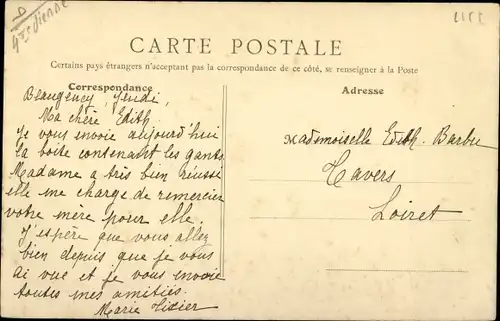 D
Hte Vienne
CARTE POSTALE
Certains pays étrangers n'acceptant pas la correspondance de ce côté, se renseigner à la Poste
Correspondance
Adresse
Beaugency, Jeudi,
Ma chère Edith.
Je vous envoie aujourd'hui
la boite contenant les gants.
Madame a très bien réussie
elle me charge de remercier
votre mère pour elle.
J'espère que vous allez
bien depuis que je vous
ai vue et je vous envoie
toutes mes amitiés.
Marie
Mademoiselle Edith. Barbu
Tavers
Loiret